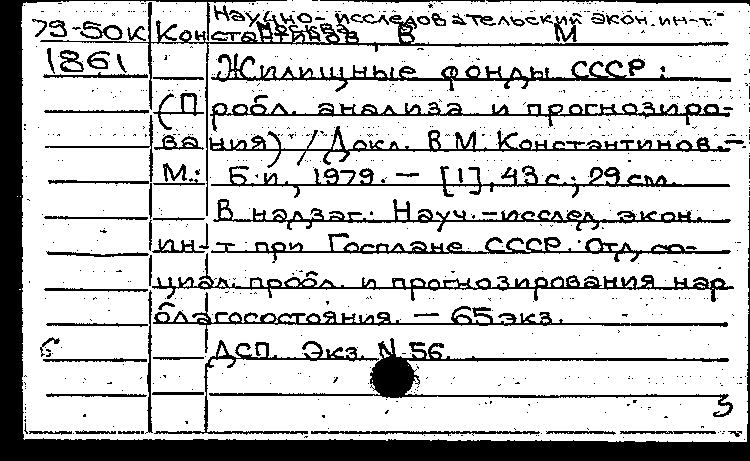 Научно-исследовательский экон. ин-т.
79-50к Константинов, В М
1861 Жилищные фонды СССР:
(Пробл. анализа и прогнозиро-
вания) / Докл. В.М. Константинов.-
М.: Б.и., 1979. — [1], 43 с.; 29 см.
В надзаг.: Науч.-исслед. экон.
ин-т при Госплане СССР. Отд. со-
циал. пробл. и прогнозирования нар.
благосостояния. — 65 экз.
ДСП. Экз. N 56.